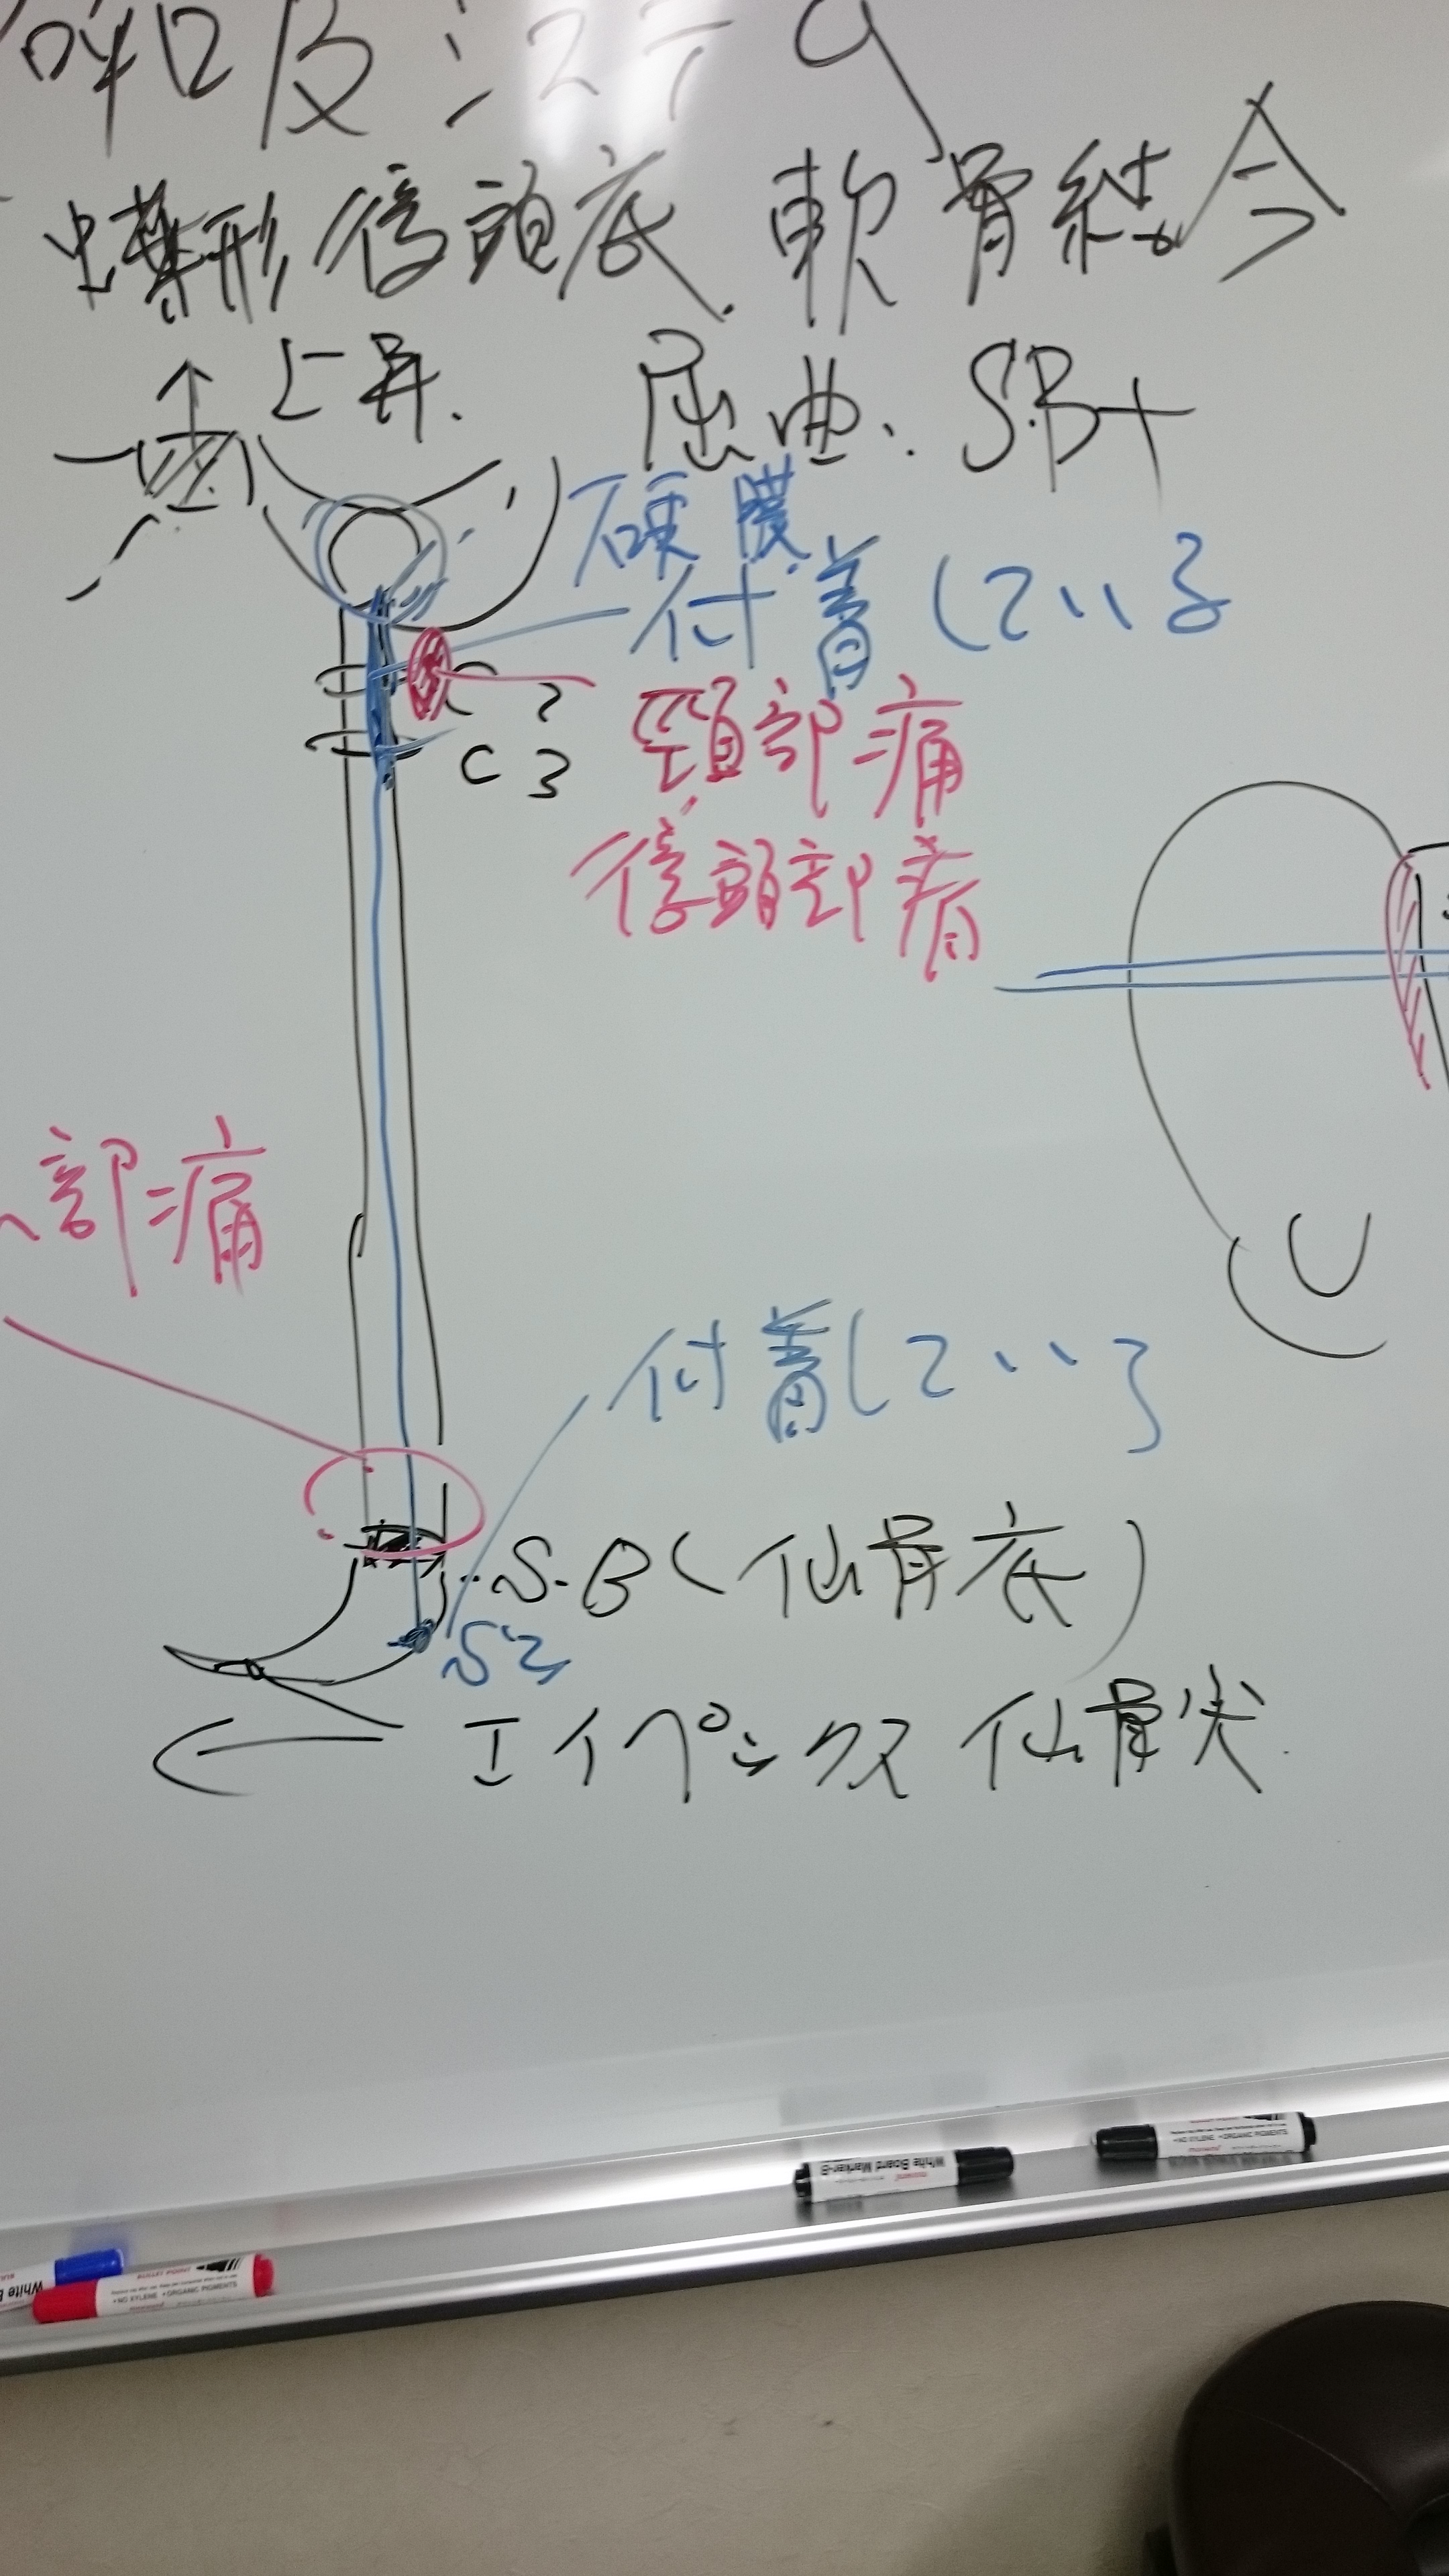 呼吸
蝶形後頭底軟骨結合
上昇. 屈曲. S.B+
硬膜
付着している
C2
C3
頸部痛
後頭部痛
部痛
付着している
S.B(仙骨底)
S2
エイペックス 仙骨尖.
White Board Marker-B
NO XYLENE • ORGANIC PIGMENTS
White B
NO XYLENE • ORGANIC PIGMENTS